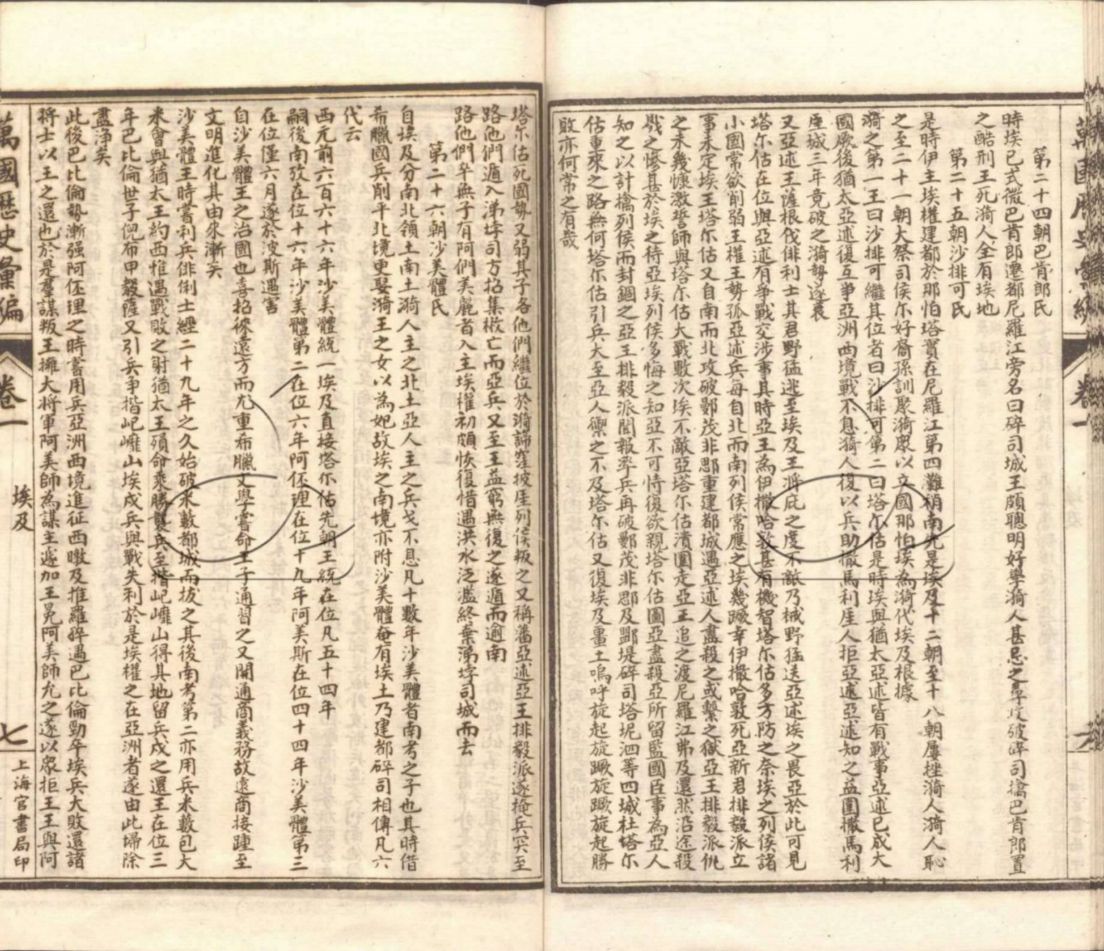 第二十四朝巴肯郎氏
時埃已式微巴肯郎遷都尼羅江旁名曰碎司城王頗聰明好學漪人甚忌之尋攻破碎司擒巴肯郎置
之酷刑王死漪人全有埃地
第二十五朝沙排可氏
是時伊主埃權建都於那怕塔實在尼羅江第四灘稍南先是埃及十二朝至十八朝屢挫漪人漪人恥
之至二十一朝大祭司侯尔好裔孫訓眾漪眾以立國那怕埃為漪代埃及根據
漪之第一王曰沙排可繼其位者曰沙排可第二曰塔尔估是時埃與猶太亞述皆有戰事亞述已成大
國厥後猶太亞述復互爭亞洲西境戰不息漪人復以兵助撒馬利厓人拒亞述亞述知之益圍撒馬利
厓城三年竟破之漪勢遂衰
又亞述王薩根伐俳利士其君野猛逃至埃及王將庇之度不敵乃械野猛送亞述埃之畏亞於此可見
塔尔估在位與亞述有爭戰交涉事其時亞王為伊撒哈敦甚有機智塔尔估多方防之奈埃之列侯諸
小國常欲削弱王權王勢孤亞述兵每自北而南列侯常應之埃幾蹶幸伊撒哈敦死亞新君排毅派立
事未定埃王塔尔估又自南而北攻破鄚茂非郡重建都城遇亞述人盡殺之或繫之獄亞王排毅派仳
之未幾慷激誓師與塔尔估大戰數次埃不敵亞塔尔估潰圍走亞王追之渡尼羅江弗及還然沿途殺
戮之慘甚於埃之待亞埃列侯多悔之知亞不可恃復欲親塔尔估圖亞盡殺亞所留監國臣事為亞人
知之以計擒列侯而封錮之亞王排毅派聞報率兵再破鄚茂非郡及鄳堤碎司塔坭泗等四城杜塔尔
估重來之路無何塔尔估引兵大至亞人禦之不及塔尔估又復埃及畫土嗚呼旋起旋蹶旋蹶旋起勝
敗亦何常之有哉
塔尔估死國勢又弱其子各他們繼位於漪諦窪披厓列侯叛之又稱藩亞述亞王排毅派遂掩兵突至
路他們遁入涕垶司方招集散亡而亞兵又至王益窮無復之遂遁而逾南
路他們卒無子有阿們美龐者入主埃權初頗恢復惜遇洪水泛濫終棄涕垶司城而去
第二十六朝沙美體氏
自埃及分南北領土南土漪人主之北土亞人主之兵戈不息凡十數年沙美體者南考之子也其時借
希臘國兵削平北境更娶漪王之女以為妃故埃之南境亦附沙美體奄有埃土乃建都碎司相傳凡六
代云
西元前六百六十六年沙美體統一埃及直接塔尔估先朝王統在位凡五十四年
嗣後南攷在位十六年沙美體第二在位六年阿伾理在位十九年阿美斯在位四十四年沙美體第三
在位僅六月遂於波斯遇害
自沙美體王之治國也喜招徠遠方而尤重希臘文學嘗命王子通習之又開通商義務故遠商接踵至
文明進化其由來漸矣
沙美體王時嘗剩兵俳俐士經二十九年之久始破米數都城而拔之其後南考第二亦用兵米數包大
米會與猶太王約西惟遇戰敗之射猶太王殞命乘勝曩兵至楷屺嶉山得其地留兵戍之還王在位三
年巴比倫世子倪布甲榖薩又引兵爭楷屺嶉山埃戍兵與戰失利於是埃權之在亞洲者遂由此埽除
盡淨矣
此後巴比倫勢漸强阿伾理之時嘗用兵亞洲西境進征西暾及推羅碎遇巴比倫勁卒埃兵大敗還諸
將士以王之還也於是羣謀叛王擁大將軍阿美師為謀主遂加王冕阿美師允之遂以眾拒王王與阿
萬國歷史彙編
卷一
埃及
七
上海官書局印